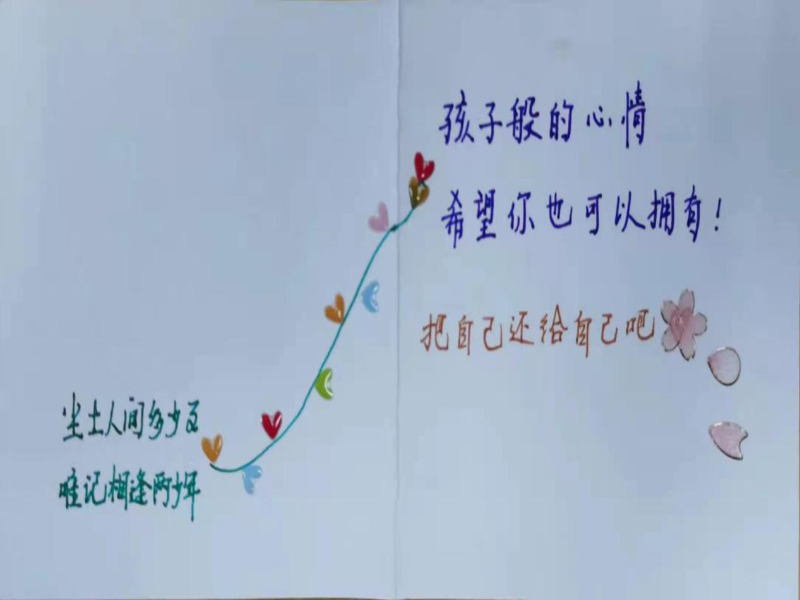 尘土人间多少
唯记相逢两少年
孩子般的心情
希望你也可以拥有！
把自己还给自己吧